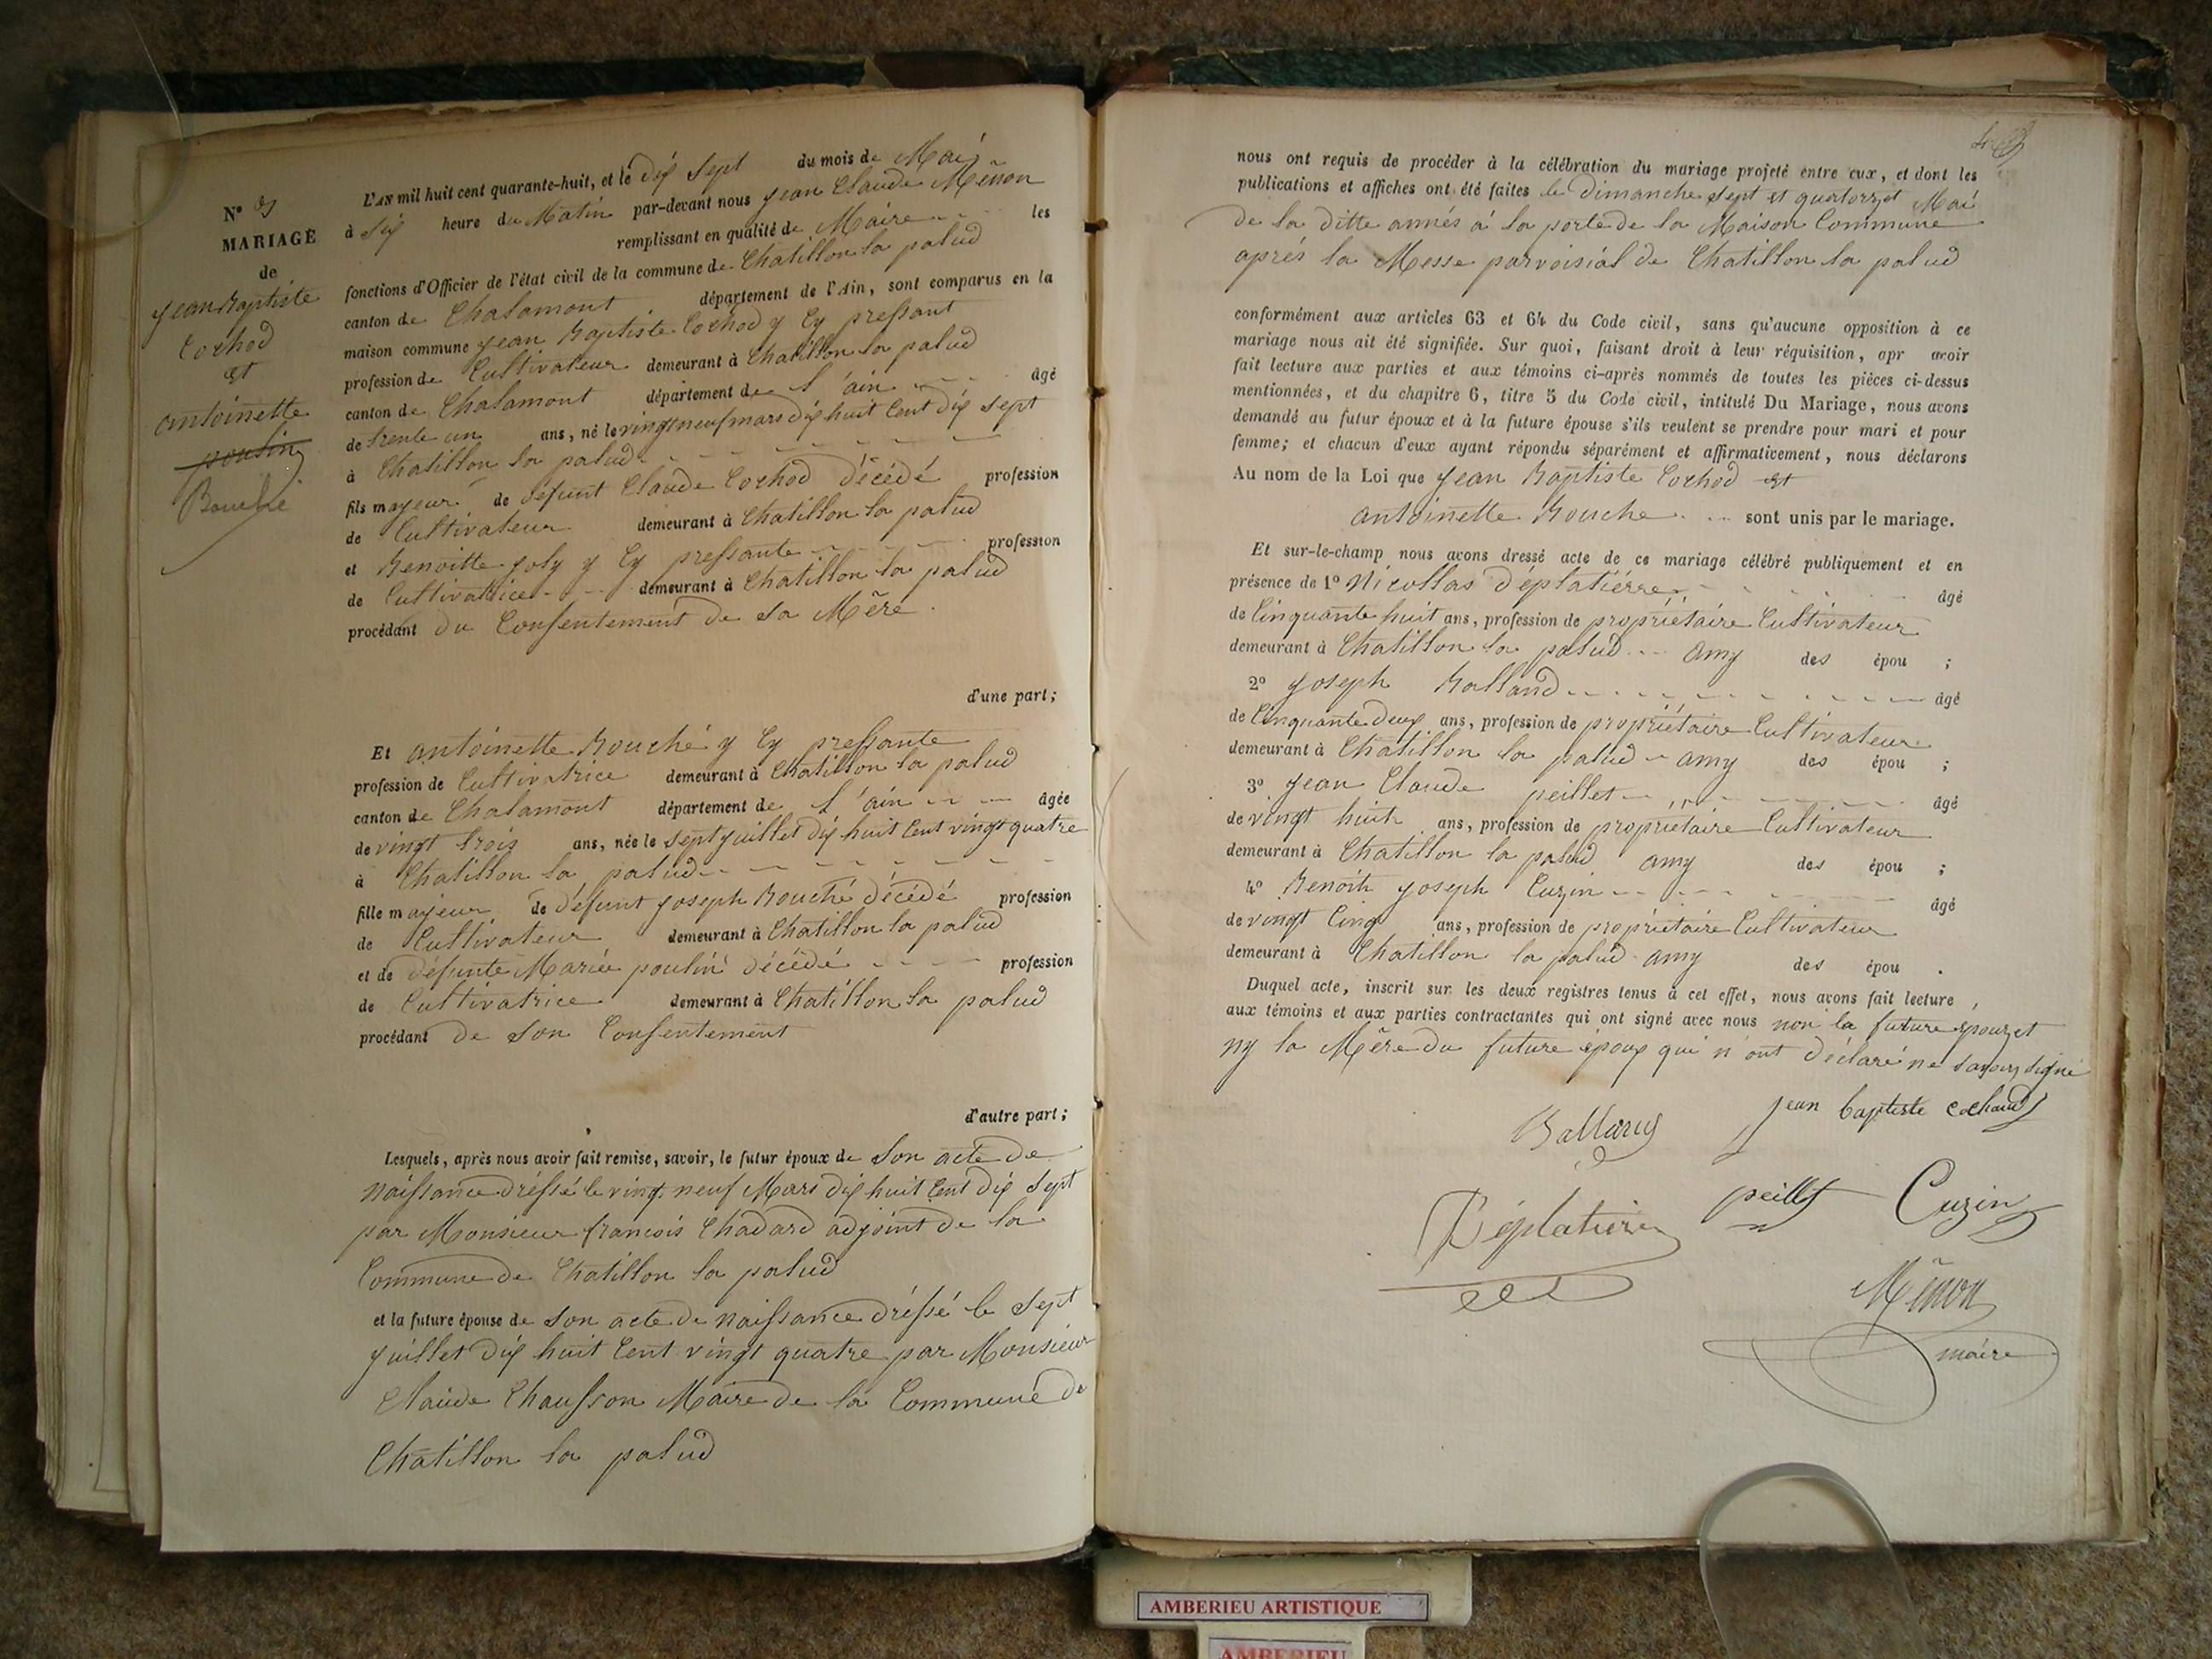 N° 9
MARIAGE
de
jean Baptiste
Cochod
et
antoinette
poulin
Bouché
L'AN mil huit cent quarante-huit, et le dix sept du mois de Mai
à six heure du Matin par-devant nous jean Claude Mênon
remplissant en qualité de Maire les
fonctions d'Officier de l'état civil de la commune de Chatillon la palud
canton de Chalamont département de l'Ain, sont comparus en la
maison commune jean Baptiste Cochod y Cy pressant
profession de Cultivateur demeurant à Chatillon la palud
canton de Chalamont département de l'ain âgé
de trente un ans, né le vingt neuf mars dix huit Cent dix sept
à Chatillon la palud
fils mayeur de défunt Claude Cochod décédé profession
de Cultivateur demeurant à Chatillon la palud
et Benoitte joly y Cy pressante profession
de Cultivatrice demeurant à Chatillon la palud
procédant du Consentement de sa Mêre
d'une part;
Et antoinette Bouché y Cy pressante
profession de Cultivatrice demeurant à Chatillon la palud
canton de Chalamont département de l'ain âgée
de vingt trois ans, née le sept juillet dix huit Cent vingt quatre
à Chatillon la palud
fille mayeur de défunt joseph Bouché décédé profession
de Cultivateur demeurant à Chatillon la palud
et de défunte Mariée pouliné décédé profession
de Cultivatrice demeurant à Chatillon la palud
procédant de son Consentement
d'autre part;
Lesquels, après nous avoir fait remise, savoir, le futur époux de son acte de
naissance dréssé le vingt neuf Mars dix huit Cent dix sept
par Monsieur francois Chadard adjoint de la
Commune de Chatillon la palud
et la future épouse de son acte de naissance dréssé le sept
juillet dix huit Cent vingt quatre par Monsieur
Claude Chausson Maire de la Commune de
Chatillon la palud
nous ont requis de procéder à la célébration du mariage projeté entre eux, et dont les
publications et affiches ont été faites le dimanche sept et quatorze Mai
de la ditte annés à la porte de la Maison Commune
aprés la Messe parvoisiál de Chatillon la palud
conformément aux articles 63 et 64 du Code civil, sans qu'aucune opposition à ce
mariage nous ait été signifiée. Sur quoi, faisant droit à leur réquisition, apr avoir
fait lecture aux parties et aux témoins ci-après nommés de toutes les pièces ci-dessus
mentionnées, et du chapitre 6, titre 5 du Code civil, intitulé Du Mariage, nous avons
demandé au futur époux et à la future épouse s'ils veulent se prendre pour mari et pour
femme; et chacun d'eux ayant répondu séparément et affirmativement, nous déclarons
Au nom de la Loi que jean Baptiste Cochod et
antoinette Bouche sont unis par le mariage.
Et sur-le-champ nous avons dressé acte de ce mariage célébré publiquement et en
présence de 1° Nicollas Déplatiérre âgé
de Cinquante huit ans, profession de propriétaire Cultivateur
demeurant à Chatillon la palud amy des épou ;
2° joseph Balland âgé
de Cinquante deux ans, profession de propriétaire Cultivateur
demeurant à Chatillon la palud amy des épou ;
3° jean Claude peillet âgé
de vingt huit ans, profession de propriétaire Cultivateur
demeurant à Chatillon la palud amy des épou ;
4° Benoit joseph Cuzin âgé
de vingt Cinq ans, profession de propriétaire Cultivateur
demeurant à Chatillon la palud amy des épou .
Duquel acte, inscrit sur les deux registres tenus à cet effet, nous avons fait lecture,
aux témoins et aux parties contractantes qui ont signé avec nous non la future épouz et
ny la Mêre du future époux qui n'ont déclaré ne savoir signé
jean baptiste cochaud
peillet Cuzin
Déplatière
Mênon
maire
AMBERIEU ARTISTIQUE
AMBERIEU